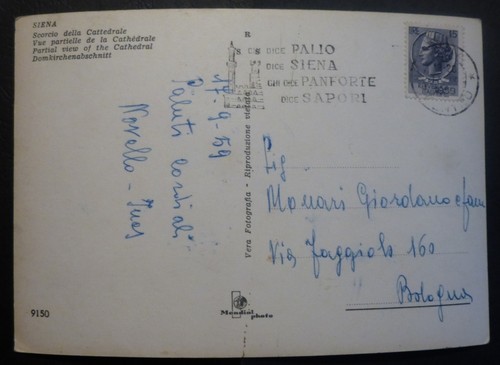 SIENA
Scorcio della Cattedrale
Vue partielle de la Cathédrale
Partial view of the Cathedral
Domkirchenabschnitt
R.
CHI DICE PALIO
DICE SIENA
CHI DICE PANFORTE
DICE SAPORI
15
17-9-59
Saluti cordiali
Novello - Ines
Vera Fotografia - Riproduzione vietata
Sig
Monari Giordano e fam
Via Faggiolo 160
Bologna
9150
Mondial photo